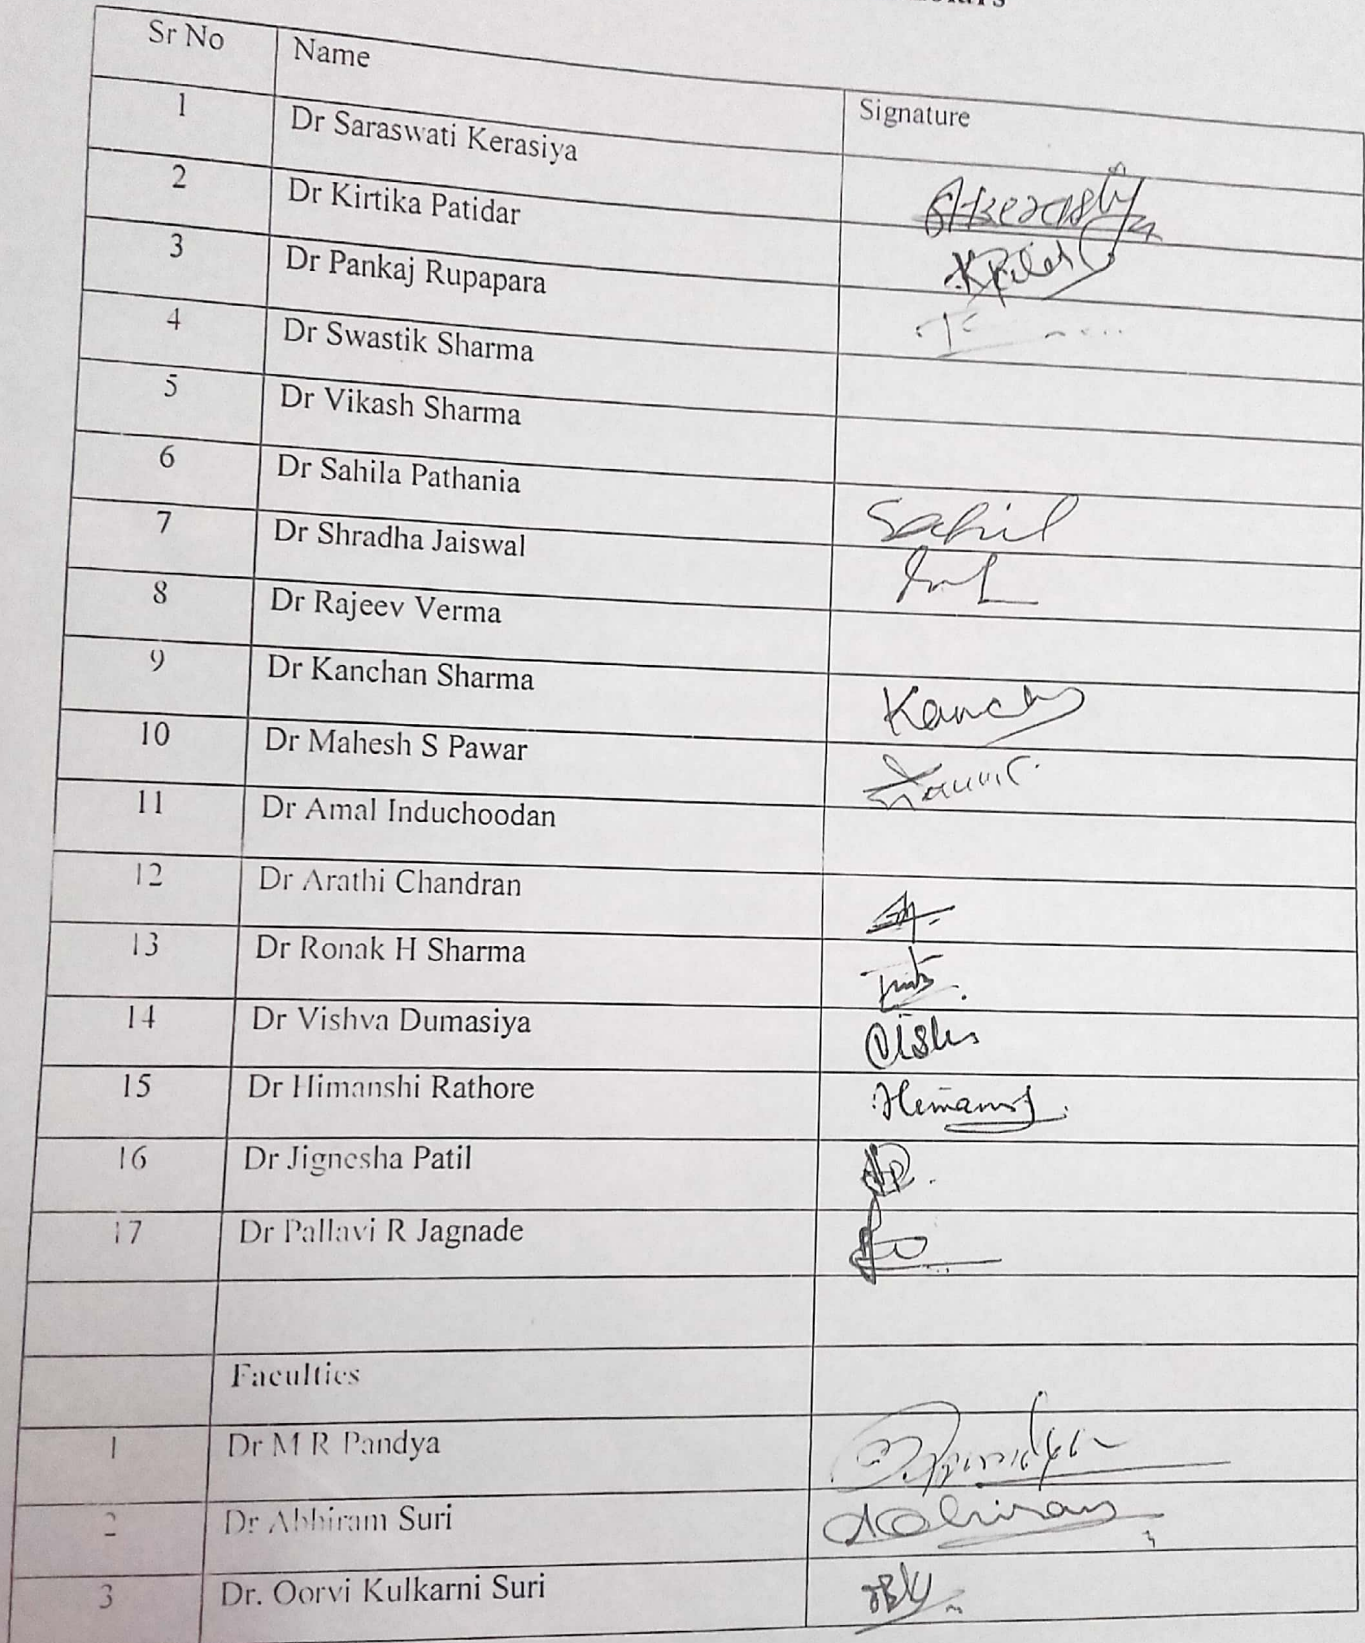 Sr No Name Signature
1 Dr Saraswati Kerasiya
2 Dr Kirtika Patidar
3 Dr Pankaj Rupapara
4 Dr Swastik Sharma
5 Dr Vikash Sharma
6 Dr Sahila Pathania Sahil
7 Dr Shradha Jaiswal
8 Dr Rajeev Verma
9 Dr Kanchan Sharma
10 Dr Mahesh S Pawar
11 Dr Amal Induchoodan
12 Dr Arathi Chandran
13 Dr Ronak H Sharma
14 Dr Vishva Dumasiya
15 Dr Himanshi Rathore
16 Dr Jignesha Patil
17 Dr Pallavi R Jagnade
Faculties
1 Dr M R Pandya
2 Dr Abhiram Suri
3 Dr. Oorvi Kulkarni Suri